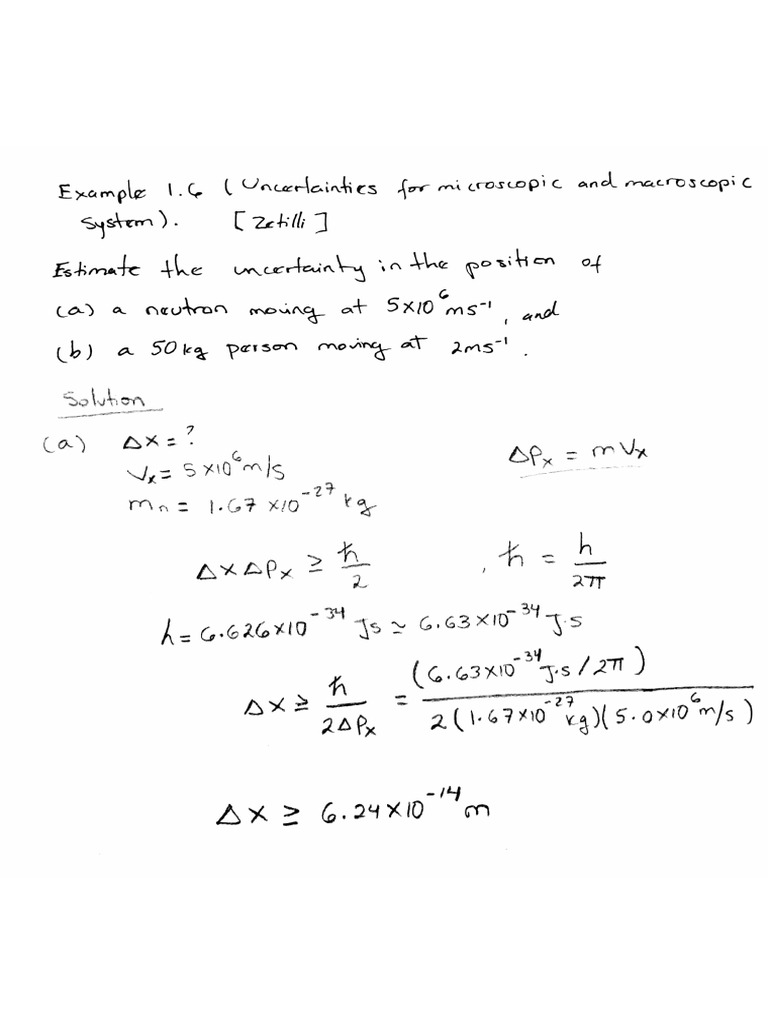 Example 1.6 (Uncertainties for microscopic and macroscopic
System). [Zetilli]
Estimate the uncertainty in the position of
(a) a neutron moving at 5×10⁶ms⁻¹, and
(b) a 50kg person moving at 2ms⁻¹.
Solution
(a) Δx = ?
Vx = 5×10⁶m/s ΔPx = mVx
mn = 1.67×10⁻²⁷kg
ΔxΔPx ≥ ħ/2 , ħ = h/2π
h = 6.626×10⁻³⁴Js ≃ 6.63×10⁻³⁴J·s
Δx ≥ ħ/2ΔPx = (6.63×10⁻³⁴J·s/2π)/2(1.67×10⁻²⁷kg)(5.0×10⁶m/s)
Δx ≥ 6.24×10⁻¹⁴m